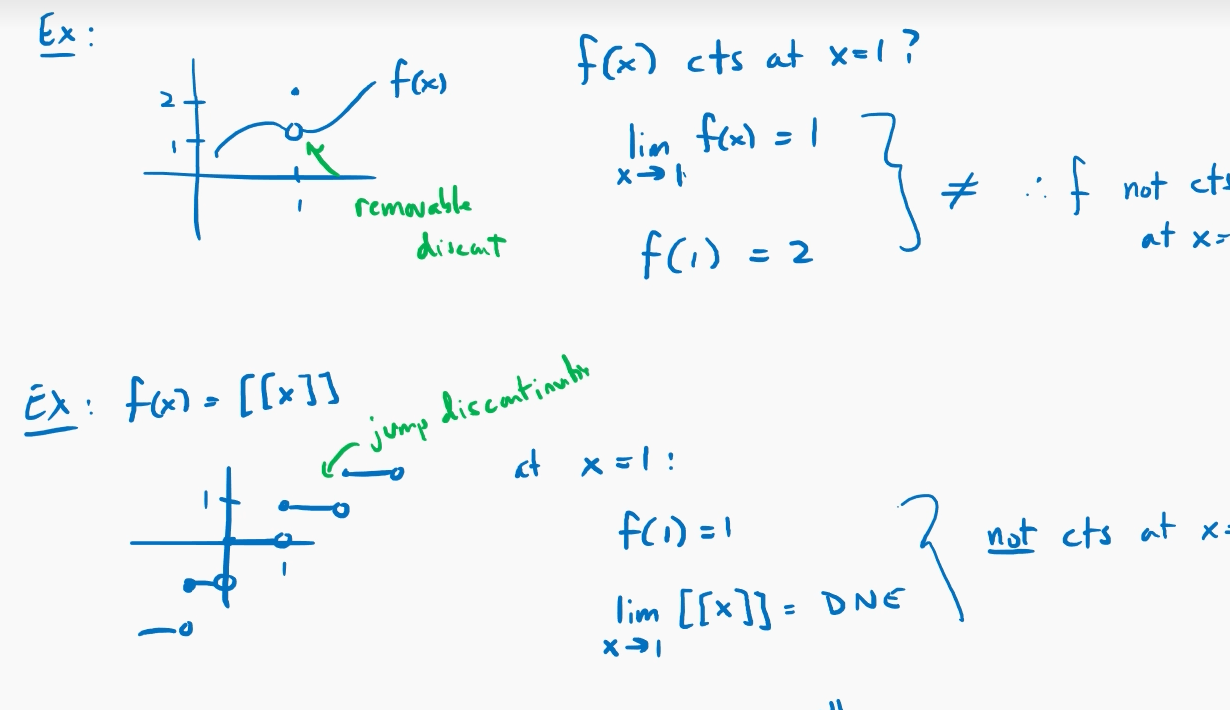 Ex:
f(x) cts at x=1?
2
f(x)
1
lim f(x) = 1
x→1
≠ ∴ f not cts
at x=
1
removable
f(1) = 2
Ex: f(x) = [[x]]
jump
at x=1:
1
f(1)=1
not cts at x=
1
lim [[x]] = DNE
x→1